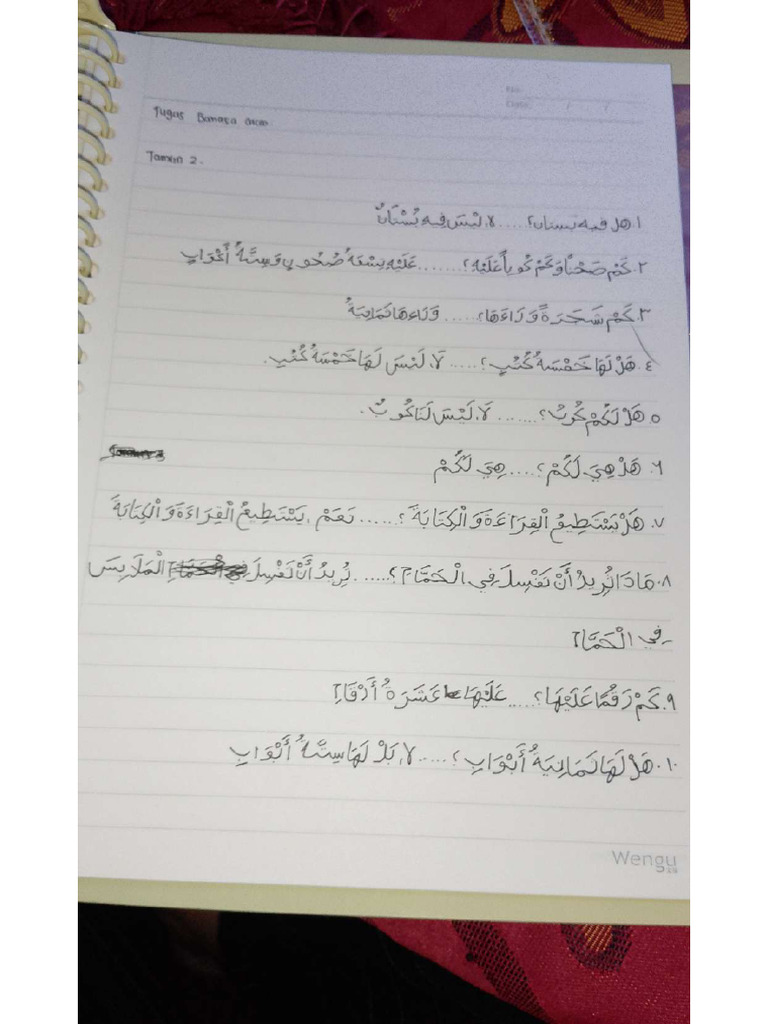 No:
Date: / /
Tugas Bahasa Arab
Tamrin 2.
١. هل فيه بستان؟ ..... لا، لَيْسَ فِيهِ بُسْتَانٌ
٢. كَمْ صَحْنًا وَكَمْ كُوبًا عَلَيْهِ؟ ....... عَلَيْهِ تِسْعَةُ صُحُونٍ وَسِتَّةُ أَكْوَابٍ
٣. كَمْ شَجَرَةً وَرَاءَهَا؟ ..... وَرَاءهَا ثَمَانِيَةُ
٤. هَلْ لَهَا خَمْسَةُ كُتُبٍ؟ ..... لَا، لَيْسَ لَهَا خَمْسَةُ كُتُبٍ.
٥ هَلْ لَكُمْ كُوبٌ؟ ....... لَا، لَيْسَ لَنَا كُوبٌ.
٦. هَلْ هِيَ لَكُمْ؟ .... هِيَ لَكُمْ
٧. هَلْ يَسْتَطِيعُ الْقِرَاءَةَ وَالْكِتَابَةَ؟ ...... نَعَمْ، يَسْتَطِيعُ الْقِرَاءَةَ وَالْكِتَابَةَ
٨. مَاذَا تُرِيدُ أَنْ تَغْسِلَ فِي الْحَمَّامِ؟ ...... تُرِيدُ أَنْ تَغْسِلَ الْمَلَابِسَ
فِي الْحَمَّامِ
٩. كَمْ رَقْمًا عَلَيْهَا؟ ..... عَلَيْهَا عَشَرَةُ أَرْقَامٍ
١٠. هَلْ لَهَا ثَمَانِيَةُ أَبْوَابٍ؟ ..... لا، بَلْ لَهَا سِتَّةُ أَبْوَابٍ
Wengu